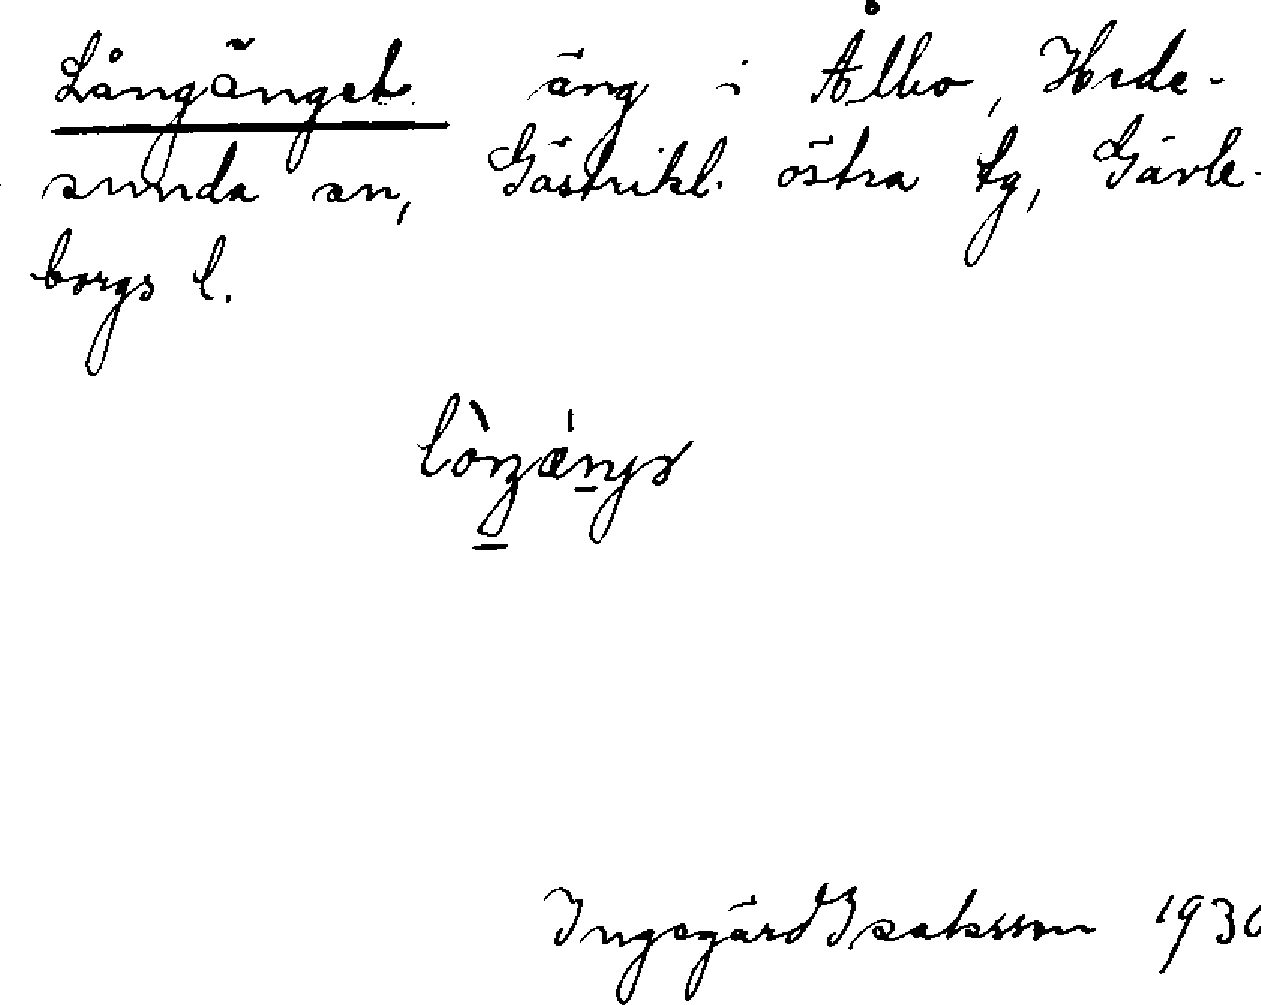 Långänget äng i Ålbo, Hede-
sunda sn, Gästrikl. östra tg, Gävle-
borgs l.
Ingegärd Isaksson